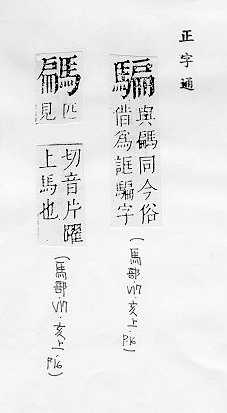 正字通
騙
與騗同今俗
借爲誆騙字
(馬部.V17.亥上.P16)
騗
匹
見
切音片躍
上馬也
(馬部.V17.亥上.P16)